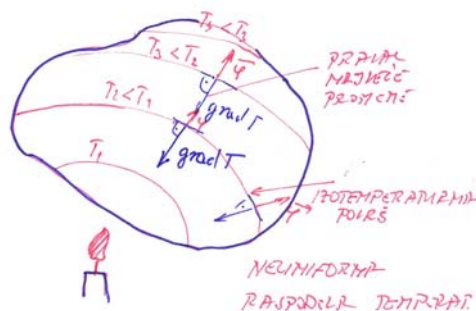 T₅ < T₃
T₃ < T₂
φ
T₂ < T₁
grad T
T₁
grad T
PRAVAC
PROMENE
φ
IZOTEMPERATURNA
POVRŠ
NEUNIFORMA
RASPODELA TEMPERAT.